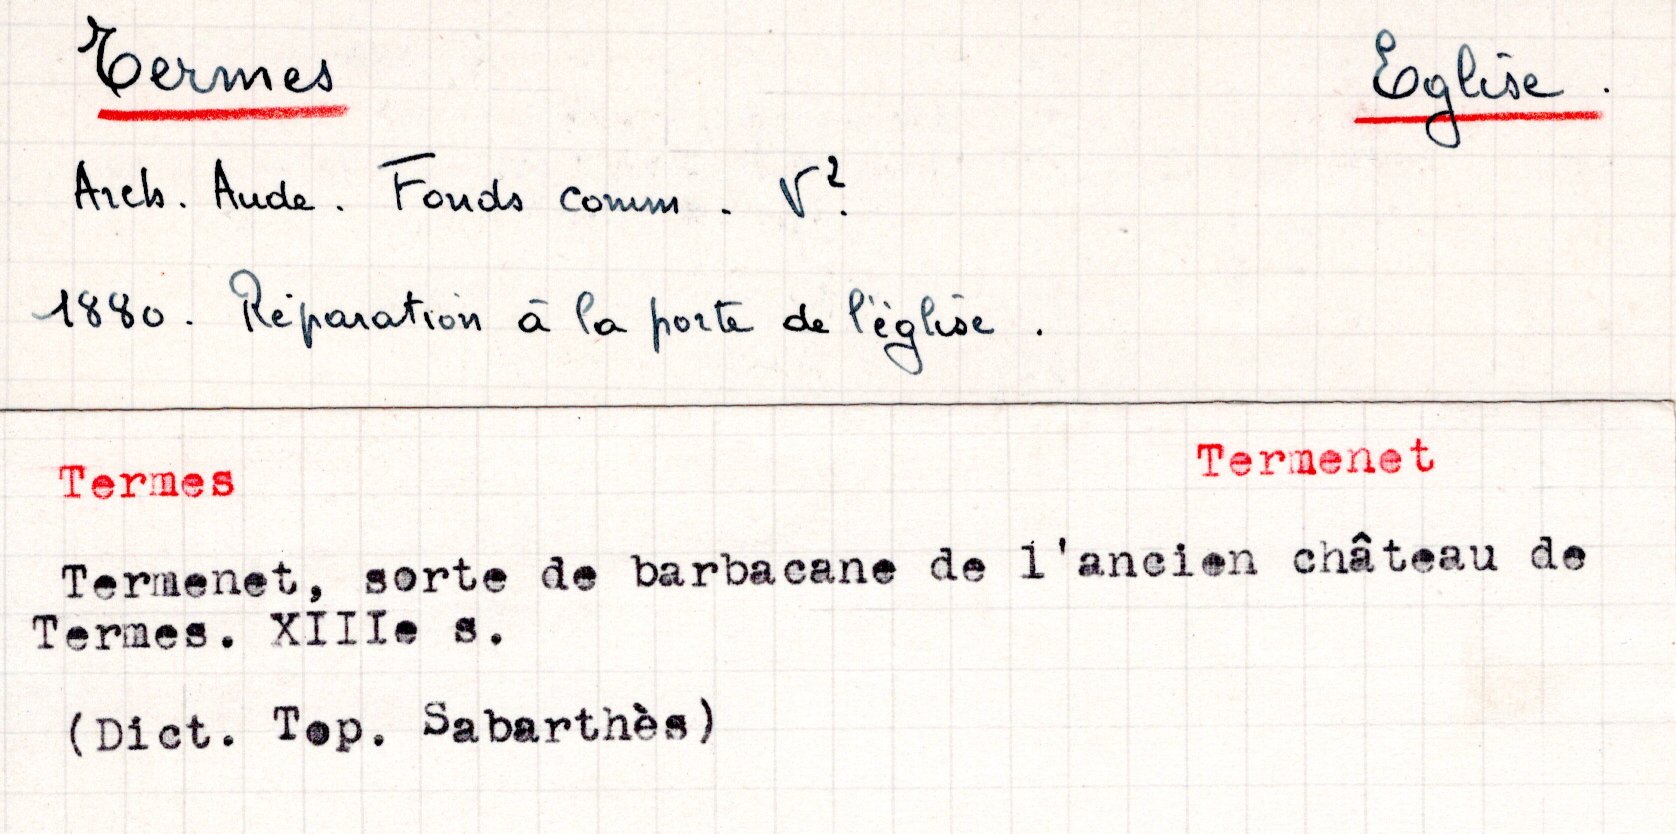 Termes Eglise.
Arch. Aude. Fonds comm. V².
1880. Réparation à la porte de l'église.
Termes Termenet
Termenet, sorte de barbacane de l'ancien château de
Termes. XIIIe s.
(Dict. Top. Sabarthès)